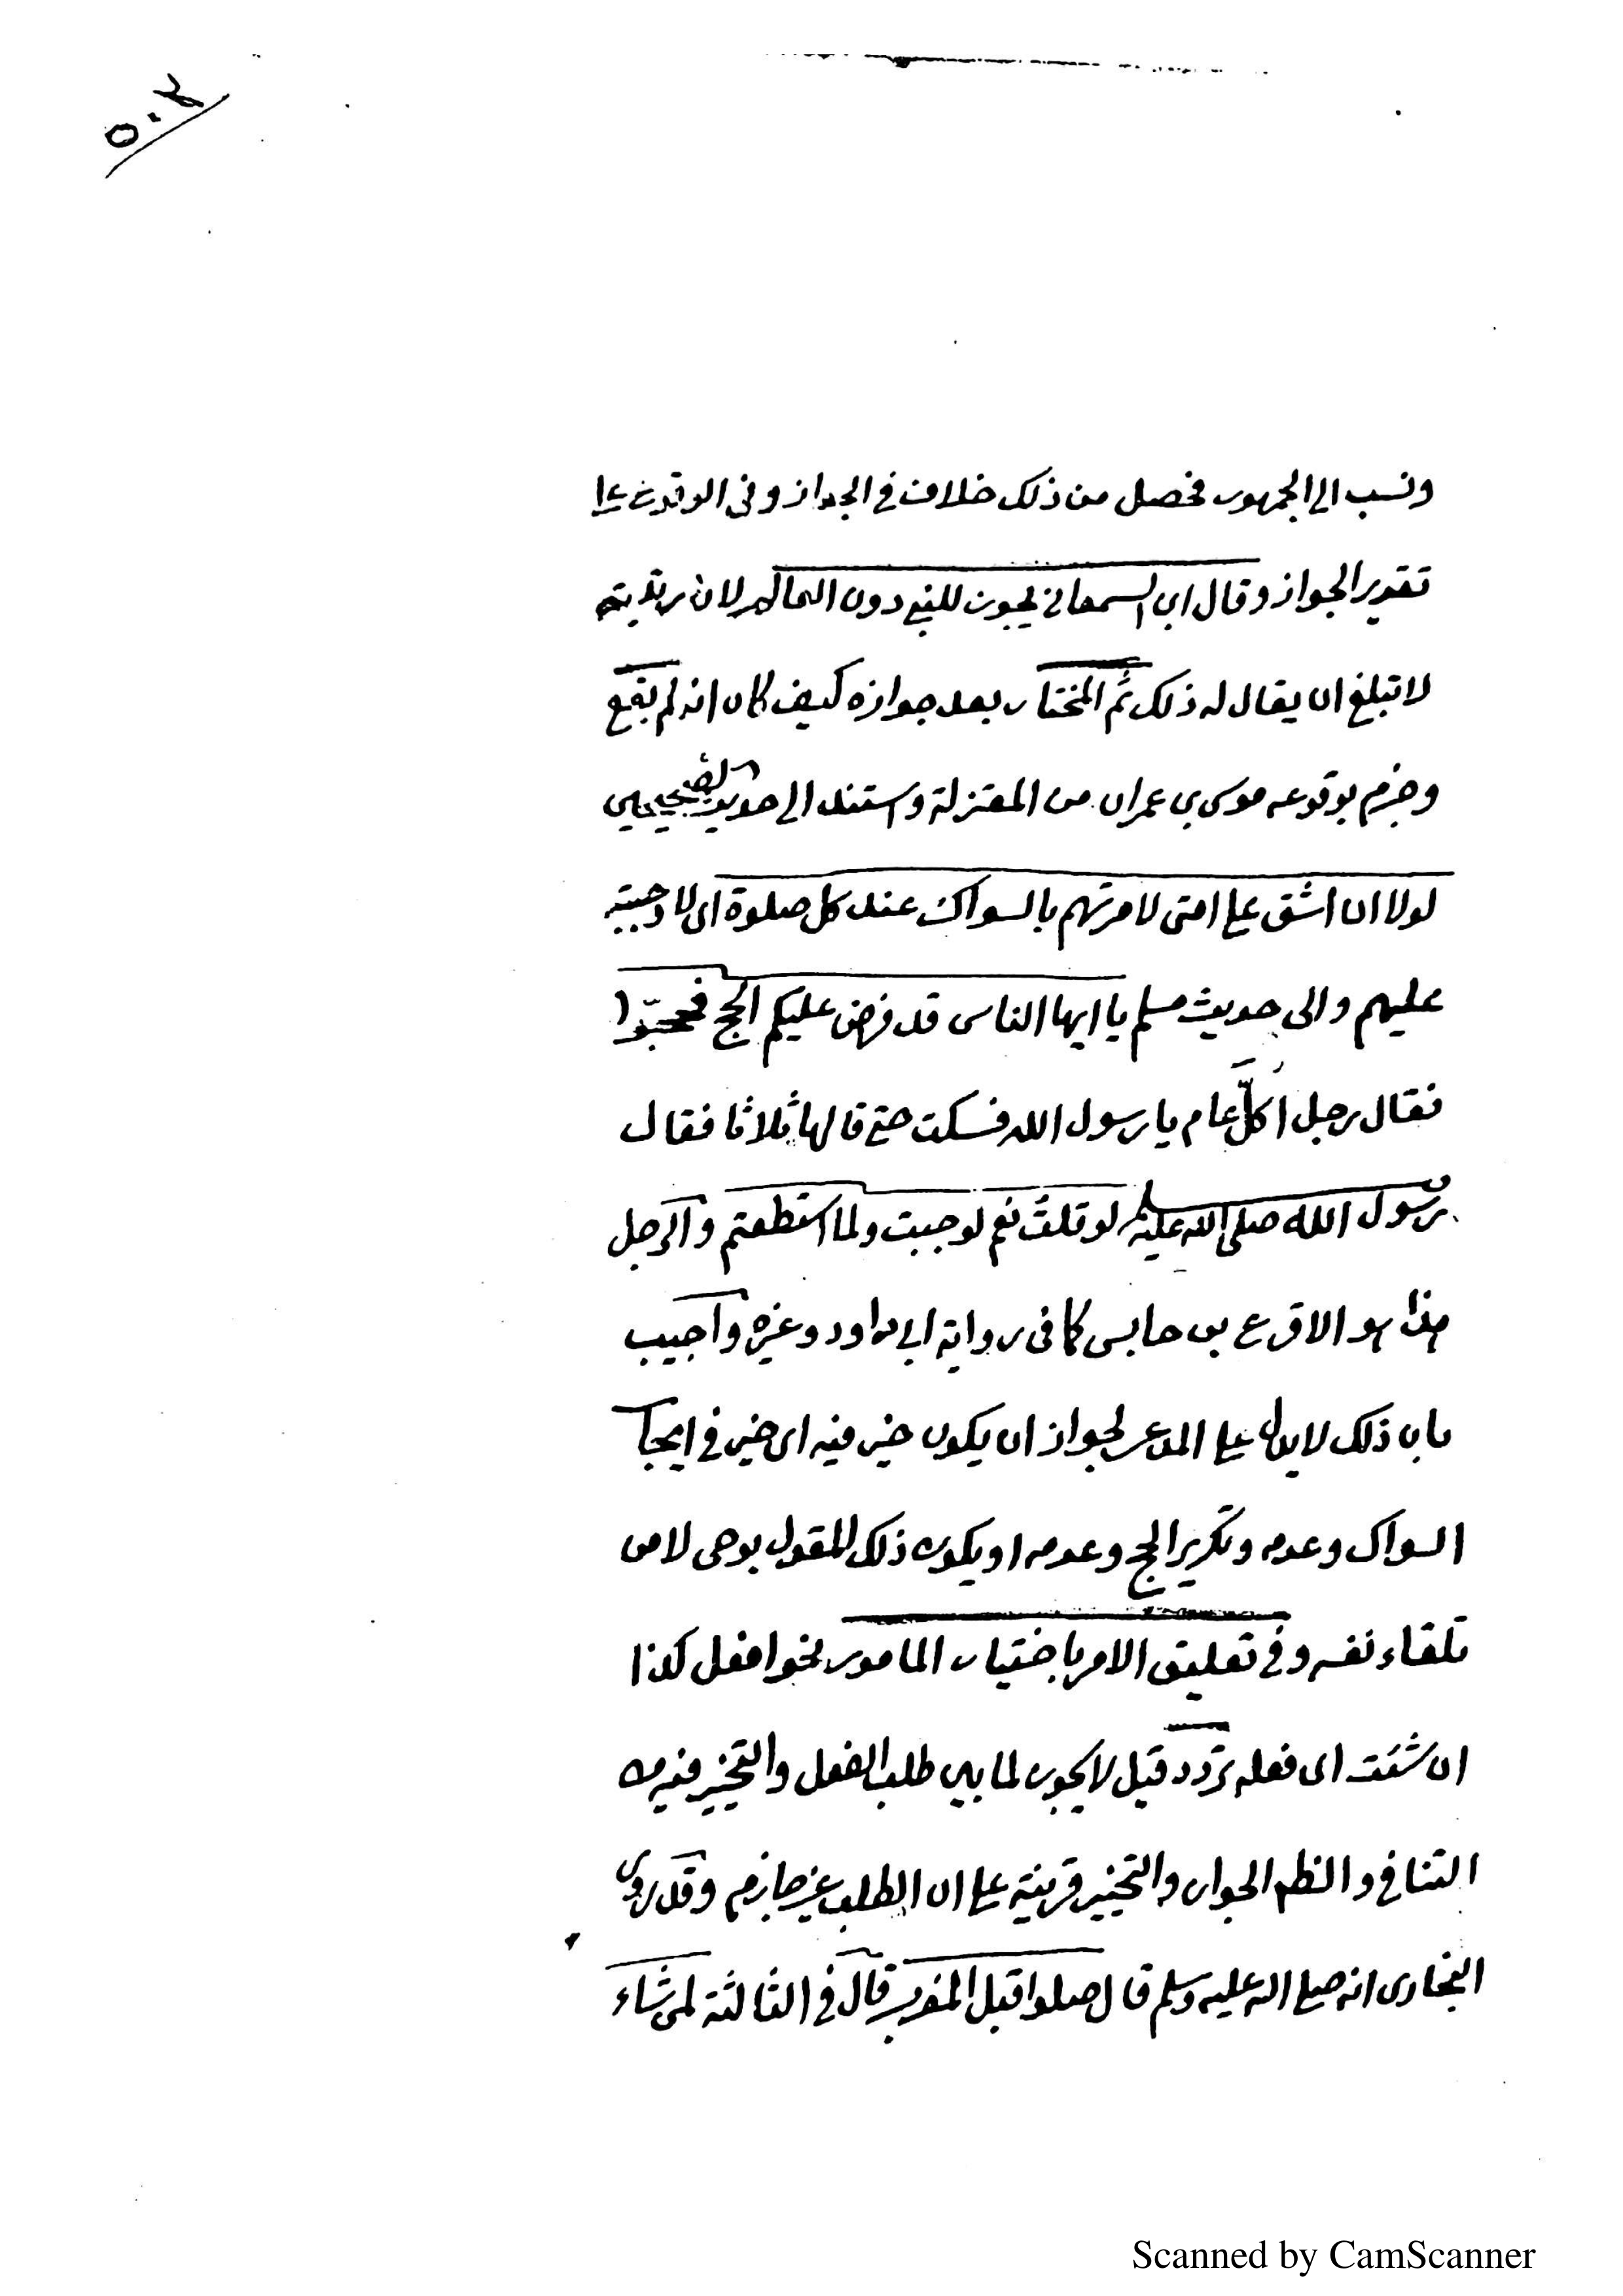 ٥٠٢
ونسب الى الجمهور فحصل من ذلك خلاف في الجواز وفي الوقوع على
تقدير الجواز وقال ابن السمعاني يجوز للنبي دون العالم لان رتبته
لا تبلغ ان يقال له ذلك ثم المختار بعد جوازه كيف كان انه لم يقع
وجزم بوقوعه موسى بن عمران من المعتزلة واستند الى حديث الصحيحين
لولا ان اشق على امتى لامرتهم بالسواك عند كل صلوة اى لاوجبته
عليهم والى حديث مسلم يا ايها الناس قد فرض عليكم الحج فحجّوا
فقال رجل اكلَّ عام يا رسول الله فسكت حتى قالها ثلاثا فقال
رسول الله صلى الله عليه وسلم لو قلتُ نعم لوجبت ولما استطعتم والرجل
هذا هو الاقرع بن حابس كما فى رواية ابى داود وغيره واجيب
بان ذلك لا يدل على المدعى لجواز ان يكون خير فيه اى خير في ايجاب
السواك وعدمه وتكرير الحج وعدمه او يكون ذلك المقول بوحى لا من
تلقاء نفسه وفي تعليق الامر باختيار المامور نحو افعل كذا
ان شئت اى فعله تردد قيل لا يجوز لما بين طلب الفعل والتخيير فيه من
التنافي والظهر الجواز والتخيير قرينة على ان الطلب غير جازم وقد روى
البخارى انه صلى الله عليه وسلم قال صلوا قبل المغرب قال في الثالثة لمن شاء
Scanned by CamScanner